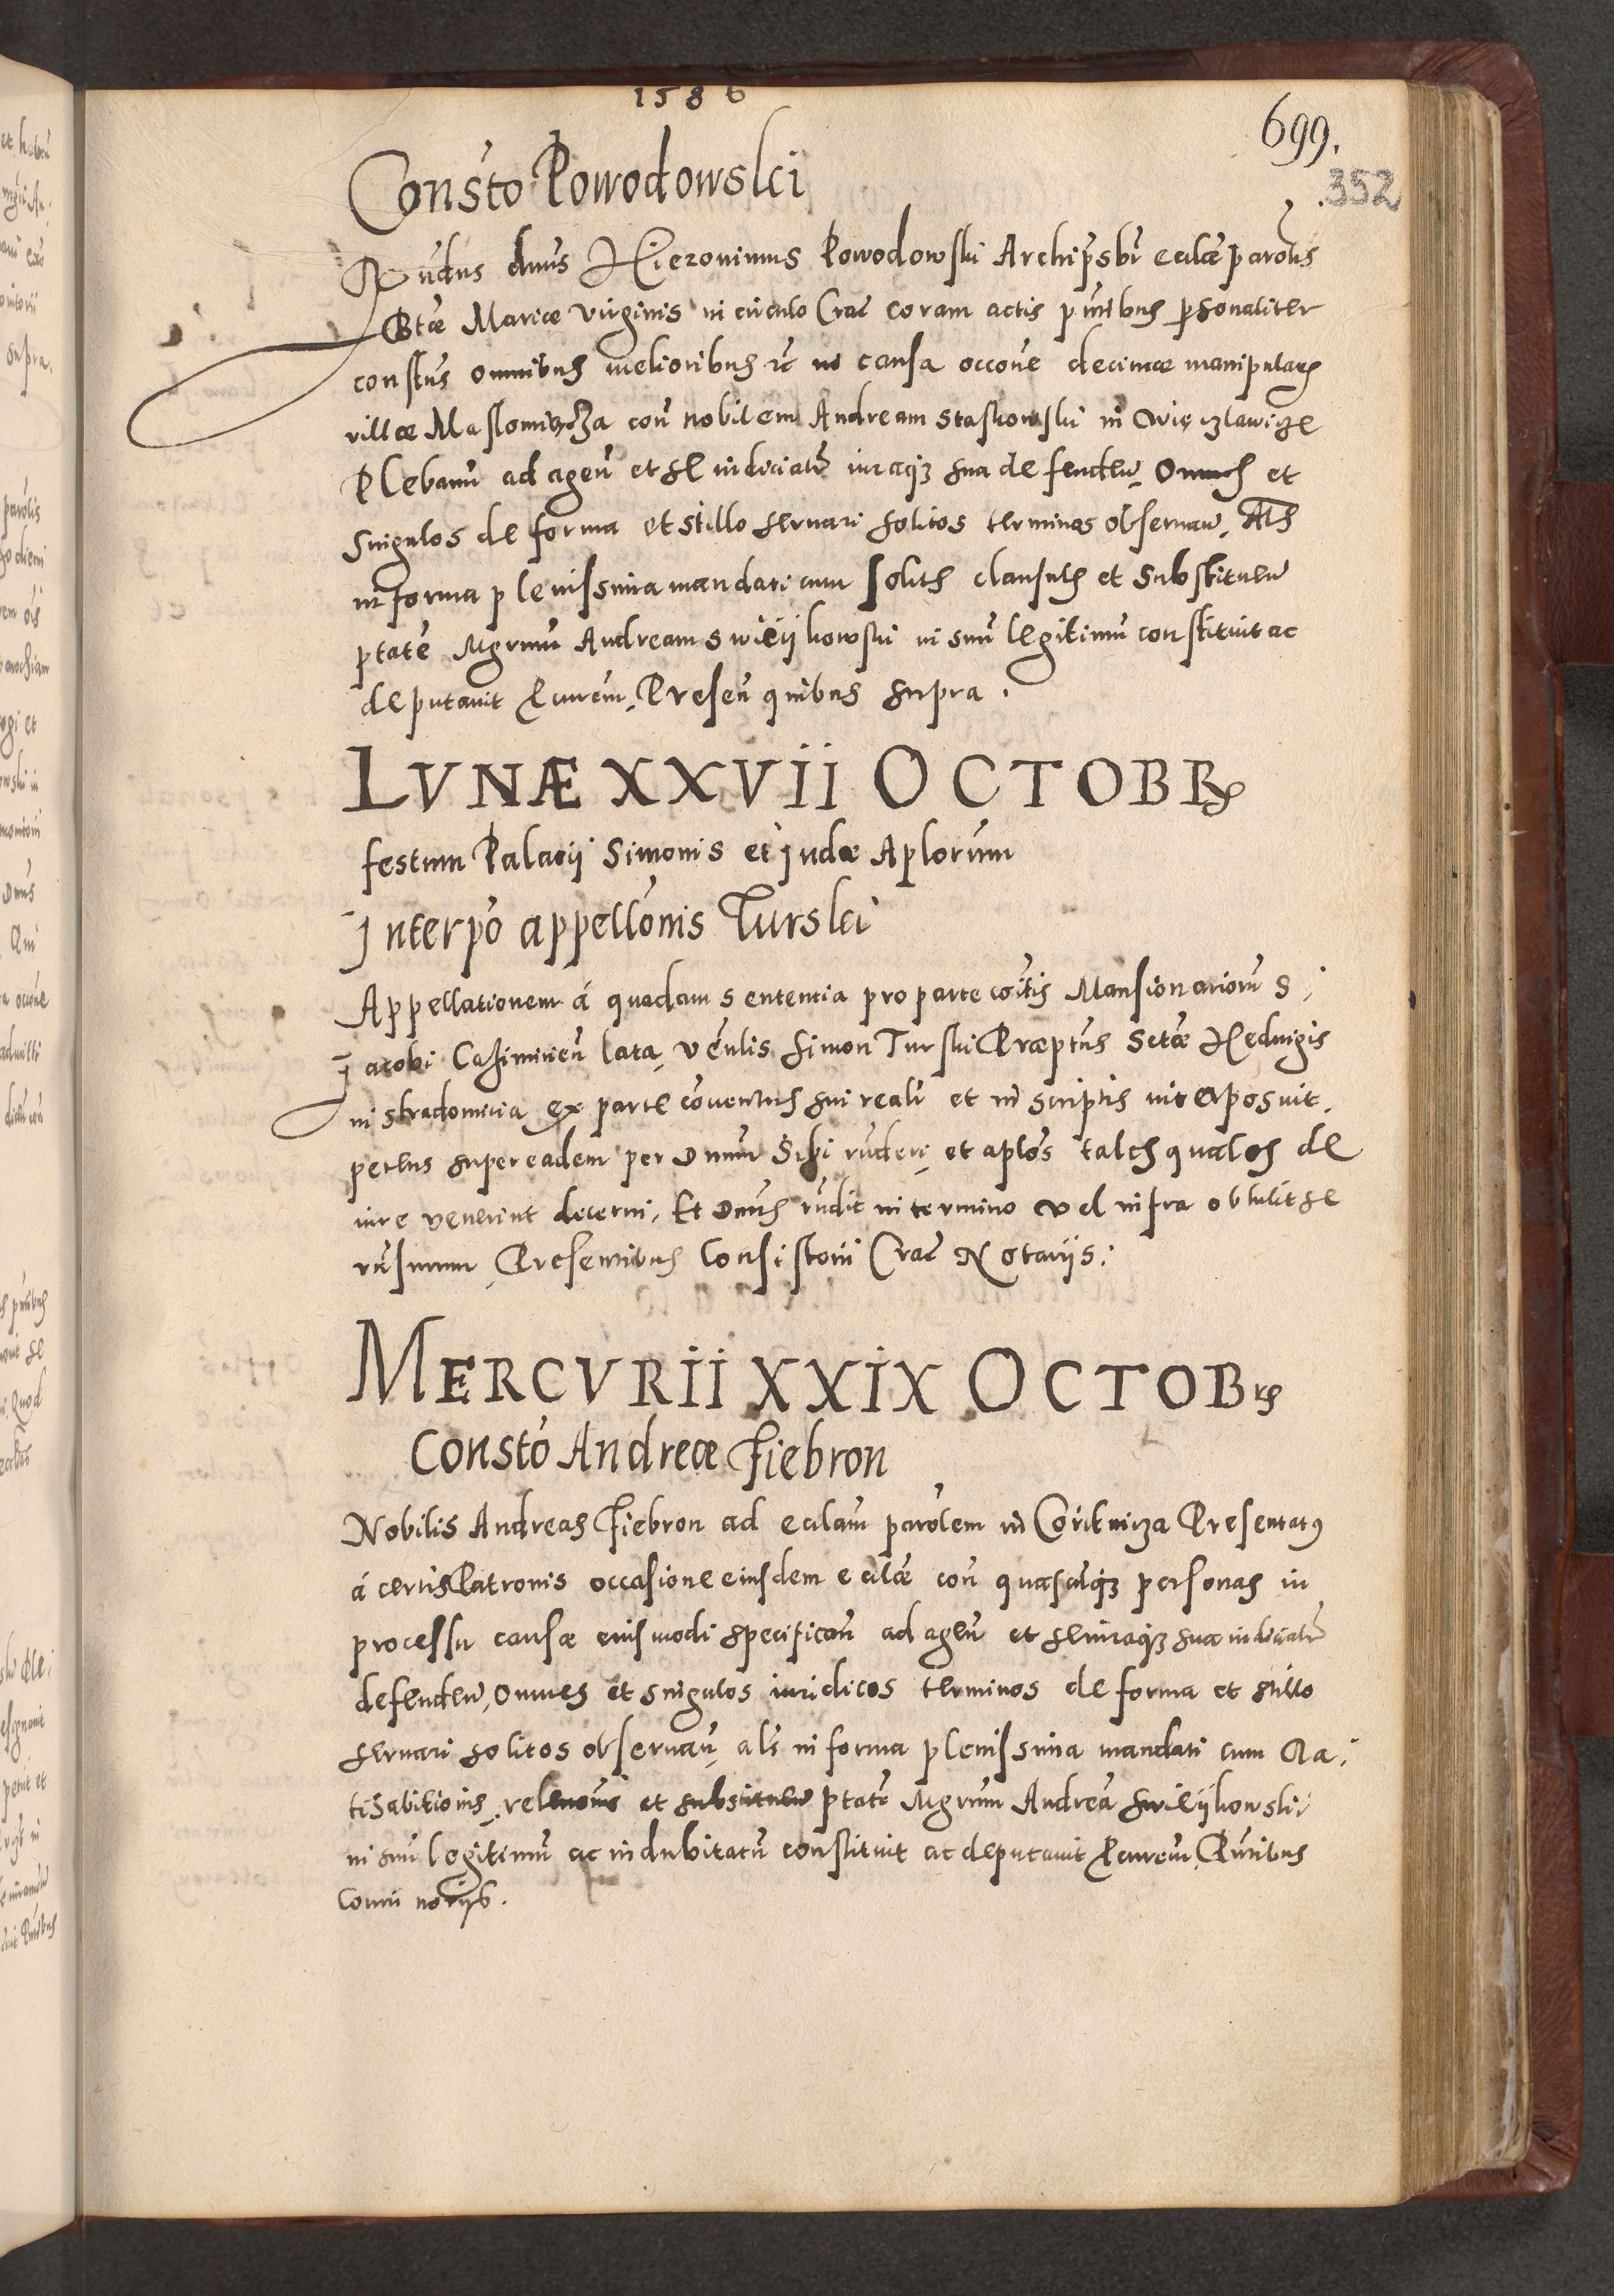 1586
699.
352
Consto Powodowski
Rndus dnus Hieronimus Powodowski Archipsbr ecclae parolis
Btae Mariae Virginis in circulo Crac coram actis pntibus personaliter
constus omnibus melioribus rc in causa occone decimae manipularis
villae Maslomiącza con nobilem Andream Staskowski in Więczlawicze
Plebanu ad agen et se in diciatr iuraqz sua defenden, Omnes et
singulos de forma et stillo servari solitos terminos observan, Als
in forma plenissima mandati cum solitis clausulis et substituen
ptate Mgrum Andream Swieijkowski in suu legitimu constituit ac
deputavit Pcurem, Presen quibus supra.
LVNÆ XXVII OCTOBRs
festum Palatij Simonis et Judae Aplorum
Interpo appellonis Turski
Appellationem á quadam sententia pro parte coitis Mansionarioru S.
Jacobi Casimirien lata, Venlis Simon Turski Praeptus Sctae Hedvigis
in Stradomicia ex parte conventus sui realr et in scriptis interposuit,
petens super eadem per Dnum sibi rnderi, et aplos tales quales de
iure venerint decerni, Et Dnus rndit in termino vel infra obtulit se
rnsurum, Presentibus Consistorii Crac Notariis.
MERCVRII XXIX OCTOBrs
Consto Andreae Fiebron
Nobilis Andreas Fiebron ad ecclam parolem in Coritnicza Presentatus
á certis Patronis occasione eiusdem ecclae con quascunqz personas in
processu causae eiusmodi specifican ad agen et se iuraqz sua in diciatr
defenden, Omnes et singulos iuridicos terminos de forma et stillo
servari solitos observan, als in forma plenissima mandati cum Ra,
tihabitionis, relevonis et substituen ptate Mgrum Andrea Swieijkowski
in suu legitimu ac indubitatu constituit ac deputavit Pcurem, Pntibus
Conrii noriis.